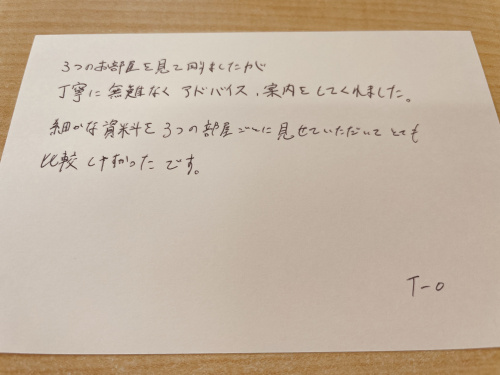 3つのお部屋を見て回りましたが
丁寧に無難なくアドバイス、案内をしてくれました。
細かな資料を3つの部屋ごとに見せていただいてとても
比較しやすかったです。
T-O